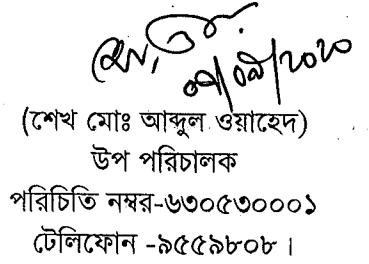 ০৭/০৯/২০২০
(শেখ মোঃ আব্দুল ওয়াহেদ)
উপ পরিচালক
পরিচিতি নম্বর-৬৩০৫৩০০০১
টেলিফোন -৯৫৫৯৮০৮।